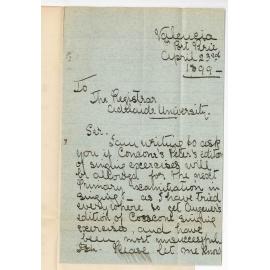 Valencia
Port Pirie
April 23rd
1899 -
To
The Registrar
Adelaide University.
Sir.
I am writing to ask
you if Concone's Peter's edition
of singing exercises will
be allowed for the next
Primary Examination in
singing? - as I have tried
everywhere to get Augener's
edition of Concone singing
exercises, and have
been most unsuccessful
Please let me know